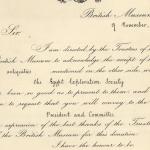 British Museum
9 November,
Sir,
I am directed by the Trustees of
British Museum to acknowledge the receipt of
antiquities mentioned in the other side, wh
the Egypt Exploration Society
been so good as to present to them; and
to request that you will convey to the
President and Committee
expression of the best thanks of the Trust
the British Museum for this donation
I have the honour to be,